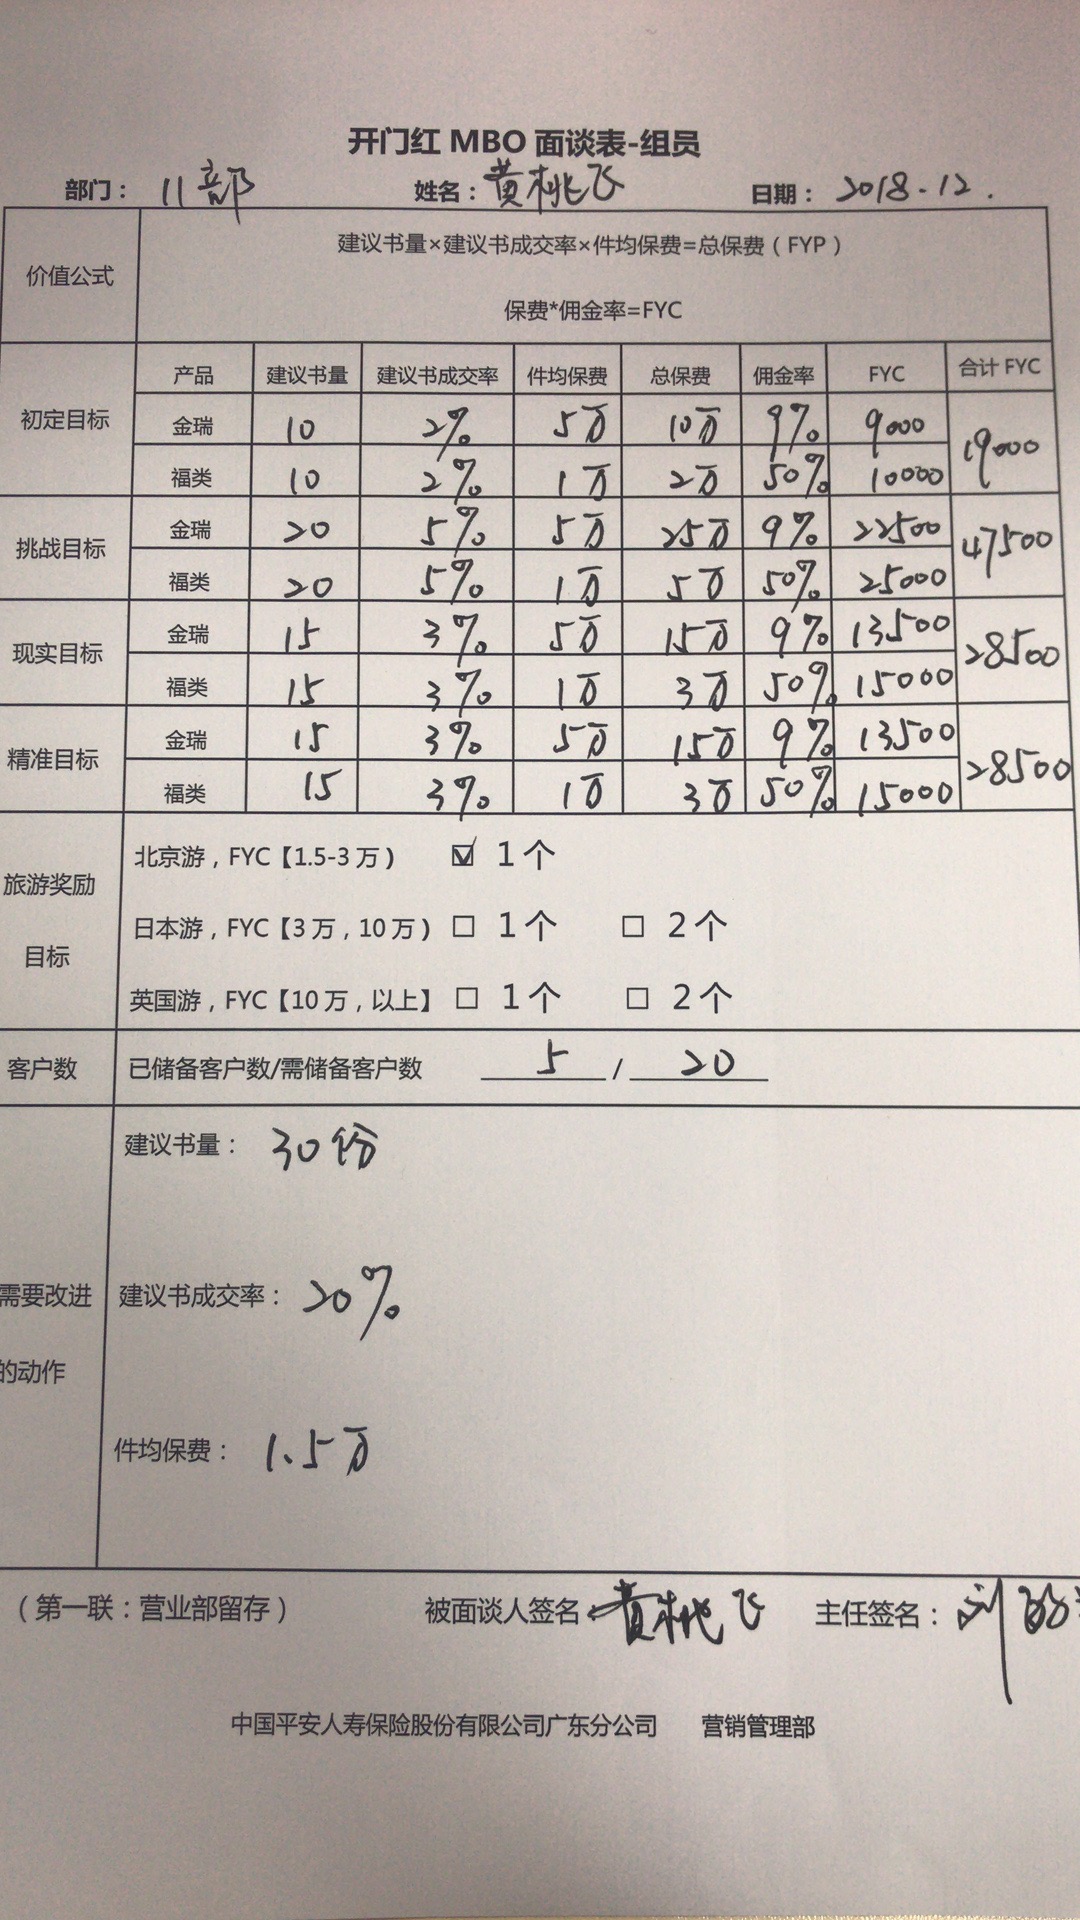 开门红 MBO 面谈表-组员
部门： 11部 姓名：黄桃飞 日期： 2018.12.
价值公式
建议书量×建议书成交率×件均保费=总保费（FYP）
保费*佣金率=FYC
产品 建议书量 建议书成交率 件均保费 总保费 佣金率 FYC 合计 FYC
初定目标
金瑞 10 2% 5万 10万 9% 9000
福类 10 2% 1万 2万 50% 10000
19000
挑战目标
金瑞 20 5% 5万 25万 9% 22500
福类 20 5% 1万 5万 50% 25000
47500
现实目标
金瑞 15 3% 5万 15万 9% 13500
福类 15 3% 1万 3万 50% 15000
28500
精准目标
金瑞 15 3% 5万 15万 9% 13500
福类 15 3% 1万 3万 50% 15000
28500
旅游奖励
目标
北京游，FYC【1.5-3 万） ☑ 1 个
日本游，FYC【3 万，10 万） □ 1 个 □ 2 个
英国游，FYC【10 万，以上】 □ 1 个 □ 2 个
客户数 已储备客户数/需储备客户数 5 / 20
需要改进
的动作
建议书量： 30份
建议书成交率： 20%
件均保费： 1.5万
（第一联：营业部留存） 被面谈人签名 黄桃飞 主任签名： 刘
中国平安人寿保险股份有限公司广东分公司 营销管理部